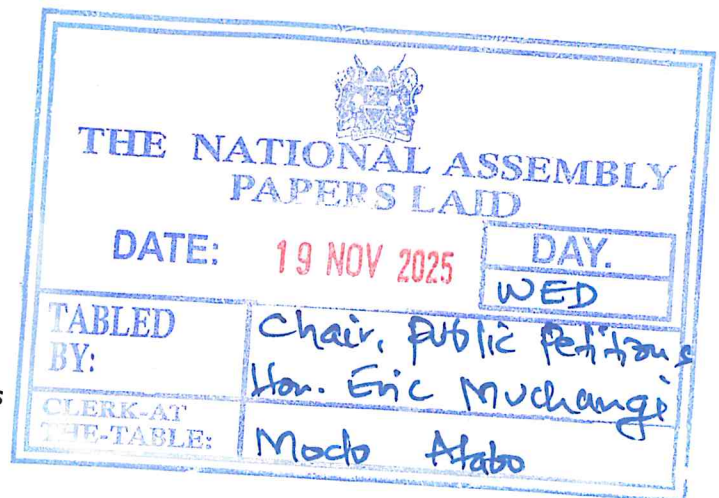 THE NATIONAL ASSEMBLY
PAPERS LAID
DATE: 19 NOV 2025
DAY.
WED
TABLED BY:
Chair, Public Petitions
Hon. Eric Muchangi
CLERK-AT THE-TABLE: